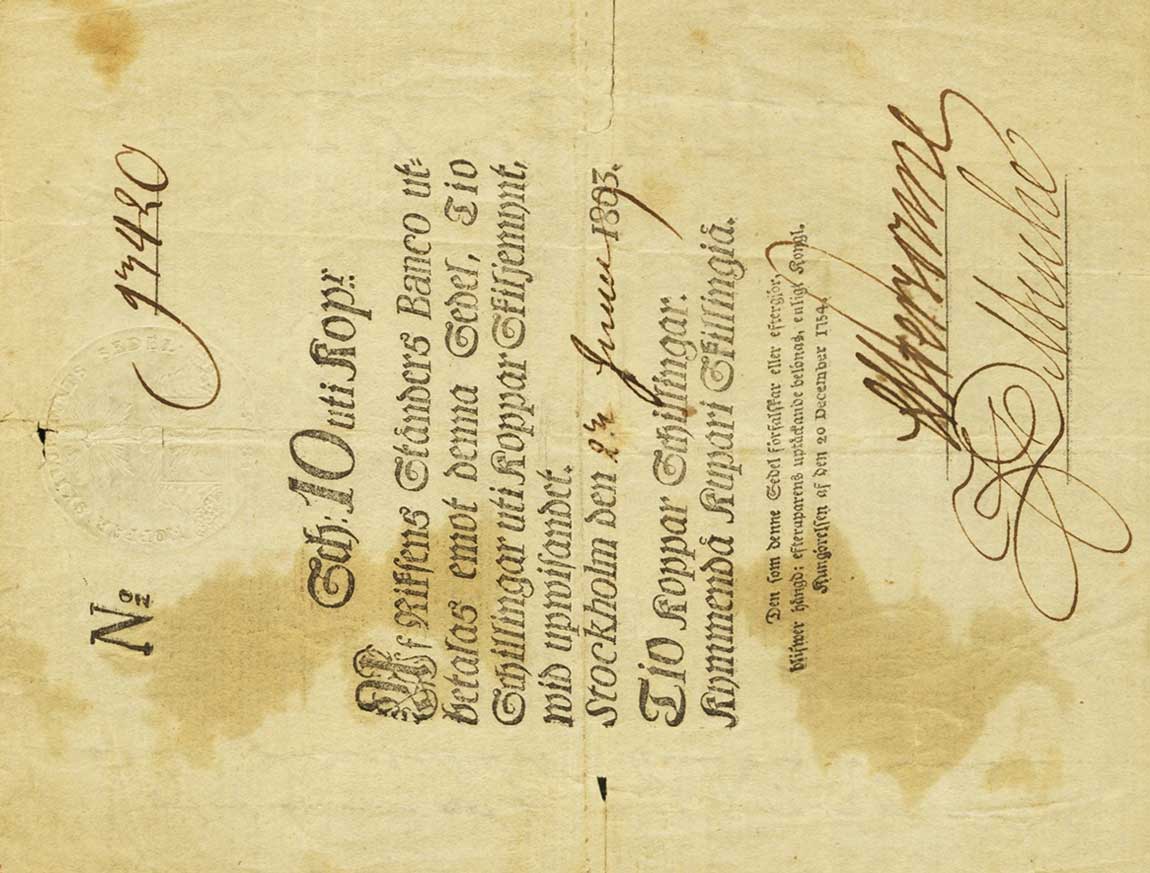 No 97420
Sch: 10 uti Kopr:
Af Riksens Ständers Banco ut-
betalas emot denna Sedel, Tio
Schillingar uti Koppar Skiljemynt,
wid upwisandet.
Stockholm den 1803.
Tio Koppar Schillingar.
Kymmendå Kupari Skillingiä.
Den som denne Sedel förfalskar eller eftergiör,
blifwer hängd; efterspaarens uptäckande belönas, enligt Kongl.
Kungörelsen af den 20 December 1754.